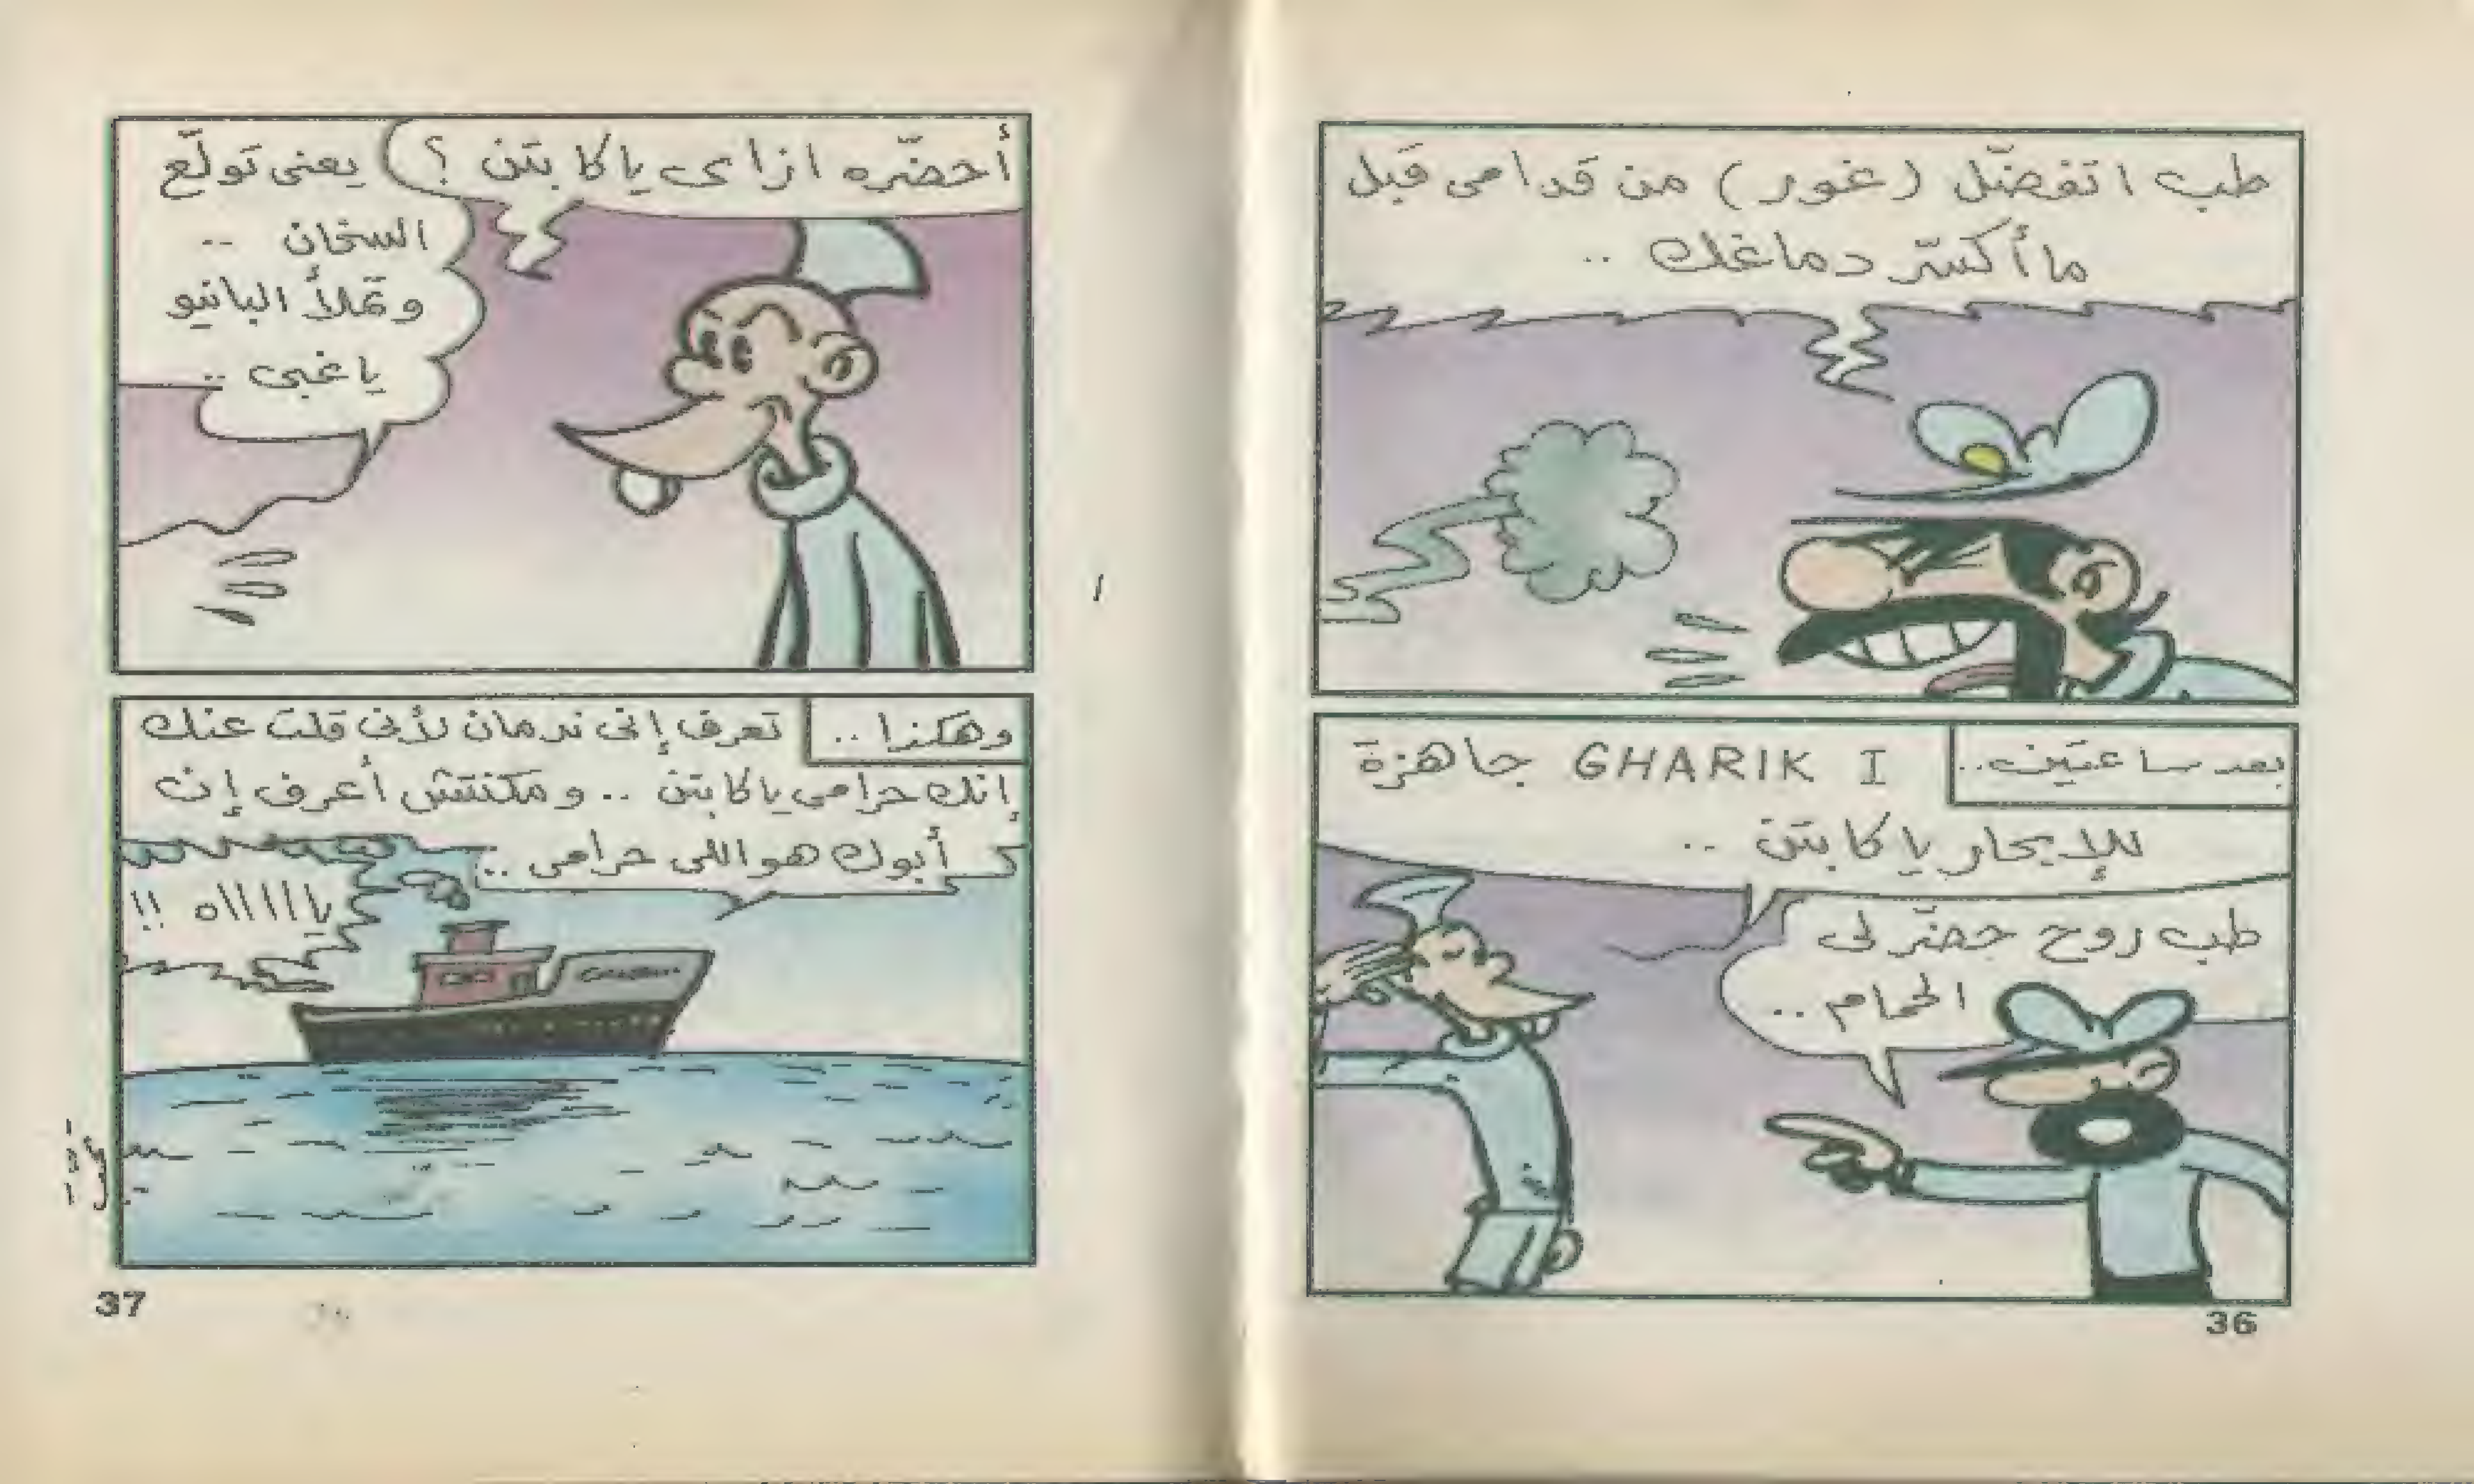 طب اتفضّل (غور) من قدامى قبل
ما أكسّر دماغك ..
بعد ساعتين..
GHARIK I جاهزة
للإبحار يا كابتن ..
طب روح حضّر لى
الحمام ..
36
أحضّره ازاى يا كابتن ؟
يعنى تولّع
السخان ..
وتملأ البانيو
يا غبى ..
وهكذا ..
تعرف إنى ندمان لأنى قلت عنك
إنك حرامى يا كابتن .. ومكنتش أعرف إن
أبوك هو اللى حرامى ..
ياااااه !!
37